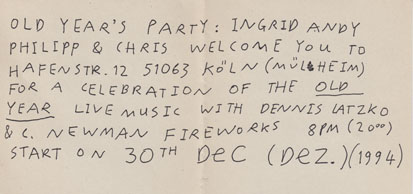 OLD YEAR'S PARTY: INGRID ANDY
PHILIPP & CHRIS WELCOME YOU TO
HAFENSTR. 12 51063 KÖLN (MÜLHEIM)
FOR A CELEBRATION OF THE OLD
YEAR LIVE MUSIC WITH DENNIS LATZKO
& C. NEWMAN FIREWORKS 8PM (20⁰⁰)
START ON 30TH DEC (DEZ.) (1994)